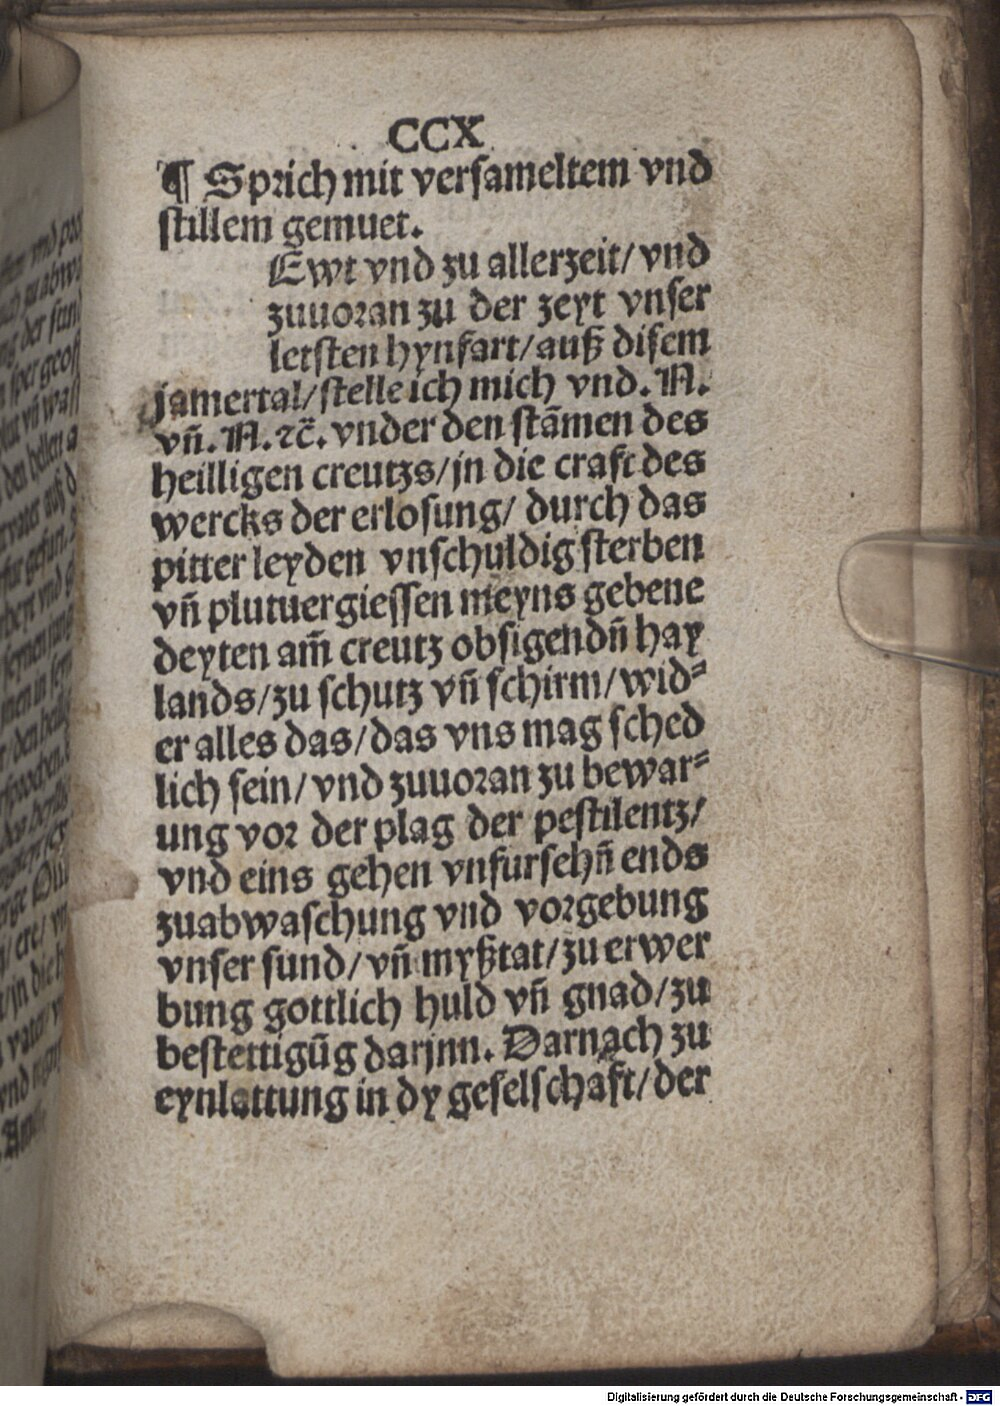 CCX
¶ Sprich mit versameltem vnd
stillem gemuet.
Ewt vnd zu allerzeit/ vnd
zuuoran zu der zeyt vnser
letsten hynfart/ auß disem
jamertal/ stelle ich mich vnd. N.
vñ. N. ⁊c̃. vnder den stãmen des
heilligen creutzs/ jn die craft des
wercks der erlosung/ durch das
pitter leyden vnschuldig sterben
vñ plutuergiessen meyns gebene
deyten am̃ creutz obsigendñ hay
lands/ zu schutz vñ schirm/ wid⸗
er alles das/ das vns mag sched
lich sein/ vnd zuuoran zu bewar⸗
ung vor der plag der pestilentz/
vnd eins gehen vnfursehñ ends
zuabwaschung vnd vorgebung
vnser sund/ vñ myßtat/ zu erwer
bung gottlich huld vñ gnad/ zu
bestettigũg darjnn. Darnach zu
eynlattung in dy geselschaft/ der
Digitalisierung gefördert durch die Deutsche Forschungsgemeinschaft - DFG